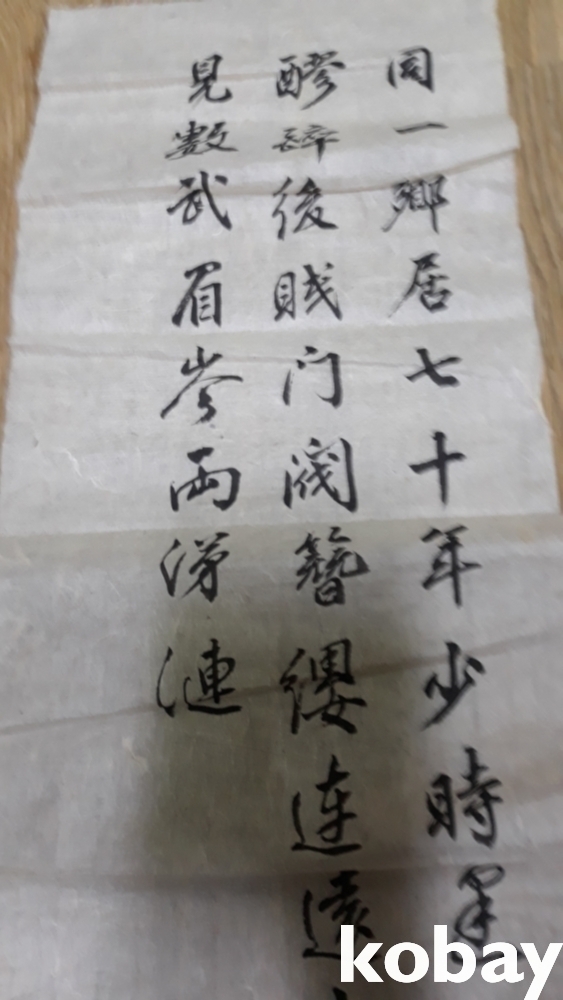 同一鄉居七十年少時
醪後門閥簪纓連遠
見數武眉岑兩涕漣
kobay